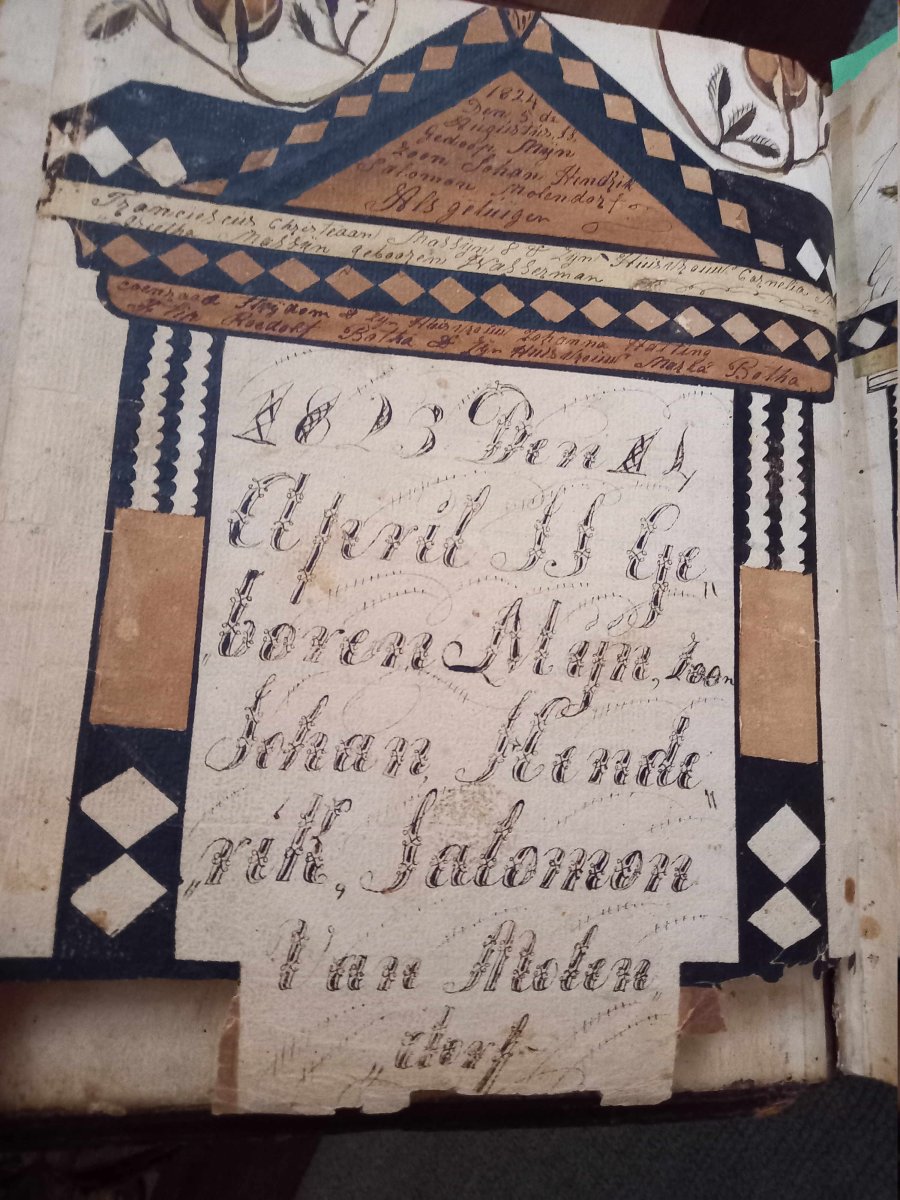 1824
Den 5 de
Augustus IS
Gedoop Mijn
Zoon Johan Hendrik
Salomon Molendorf
Als getuigen
Franciescus Chrestiaan Massijn & Zijn Huisvrouw Cornelia
Massijn geboren Wasserman
Coenraad Strijdom & Zijn Huisvrouw Johanna
Botha & Zijn Huisvrouw Marta Botha
1823 Den 11
April IS Ge„
„boren Mijn, Zoon
Johan, Hende„
„rik, Salomon
Van Molen„
„dorf